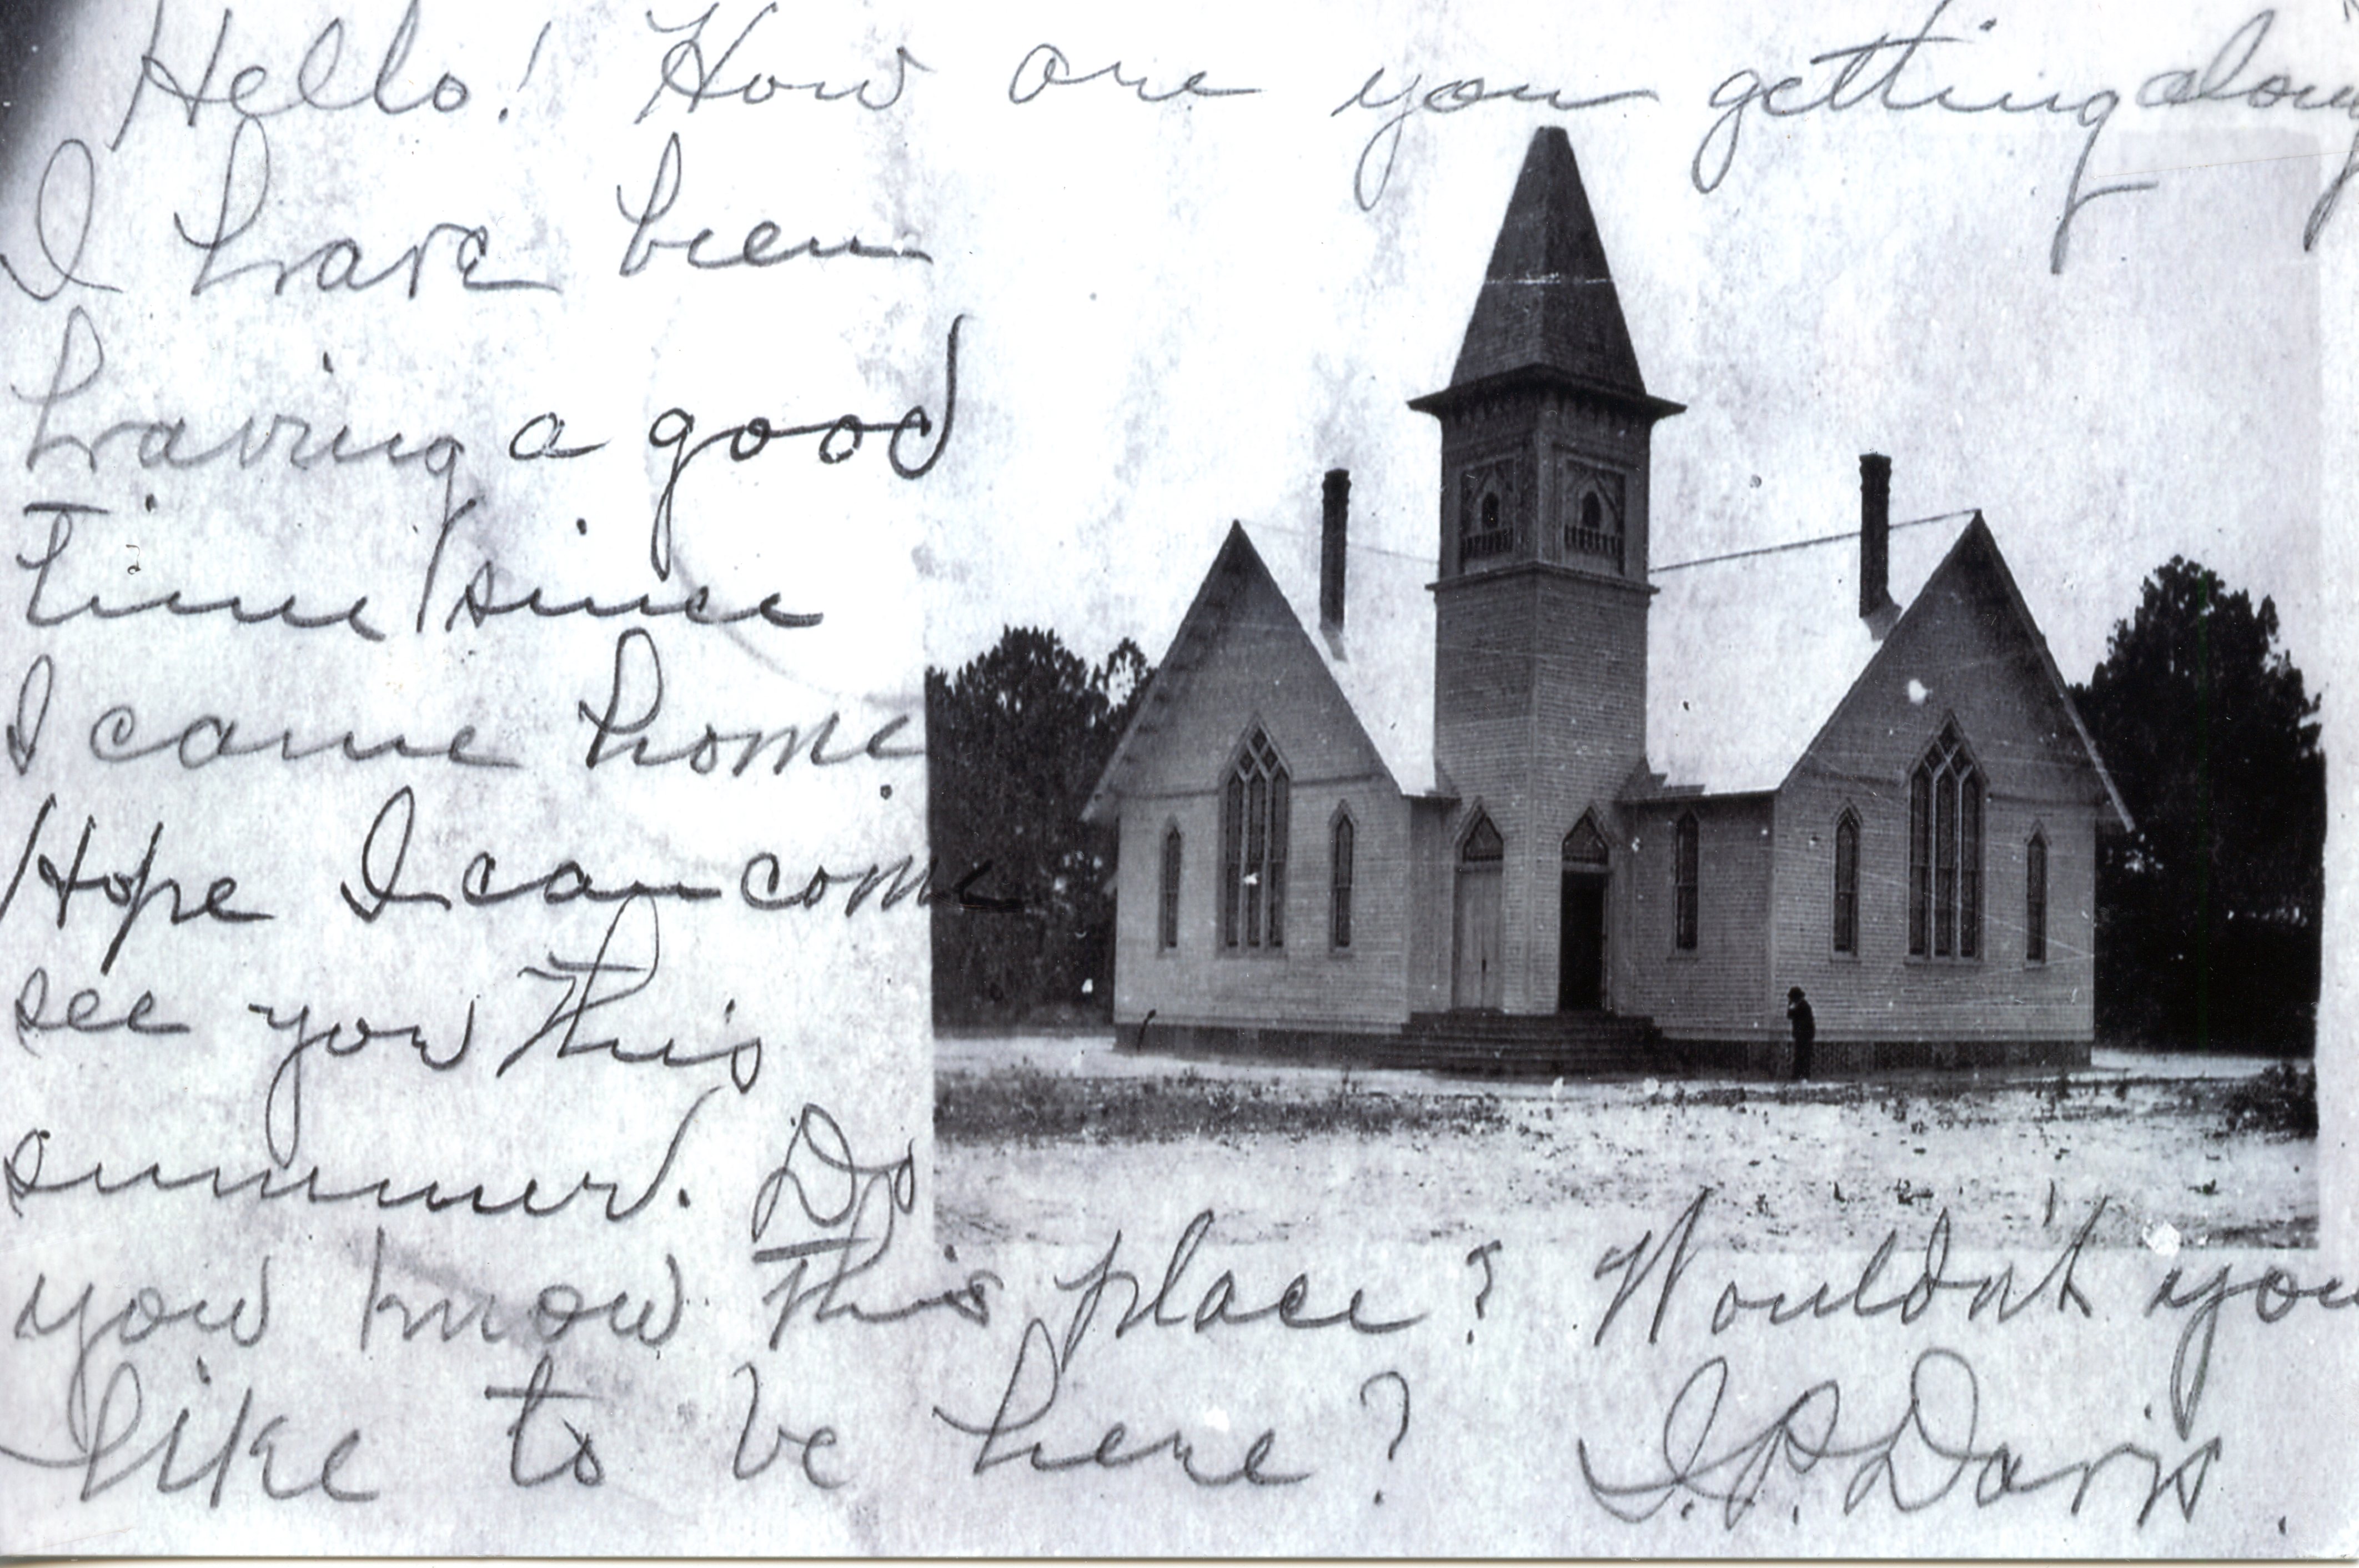 Hello! How are you getting along
I have been
having a good
time since
I came home.
Hope I can come
see you this
summer. Do
you know this place? Wouldn't you
like to be here? I.P. Davis.